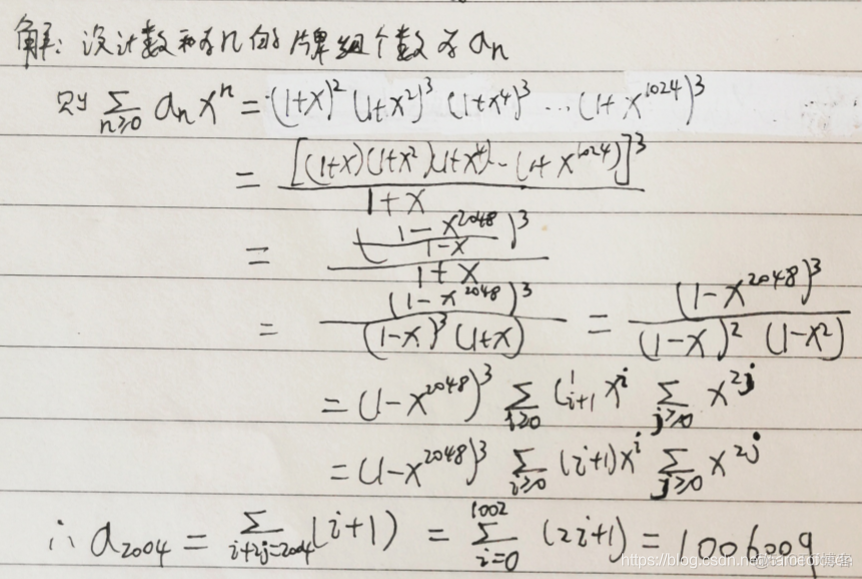 解：设计数和为n的牌组个数为 aₙ
则 ∑_{n≥0} aₙxⁿ = (1+x)² (1+x²)³ (1+x⁴)³ … (1+x¹⁰²⁴)³
= [(1+x)(1+x²)(1+x⁴)…(1+x¹⁰²⁴)]³ / (1+x)
= ((1-x²⁰⁴⁸)/(1-x))³ / (1+x)
= (1-x²⁰⁴⁸)³ / ((1-x)³(1+x)) = (1-x²⁰⁴⁸)³ / ((1-x)² (1-x²))
= (1-x²⁰⁴⁸)³ ∑_{i≥0} C¹_{i+1} xⁱ ∑_{j≥0} x²ʲ
= (1-x²⁰⁴⁸)³ ∑_{i≥0} (i+1)xⁱ ∑_{j≥0} x²ʲ
∴ a₂₀₀₄ = ∑_{i+2j=2004} (i+1) = ∑_{i=0}^{1002} (2i+1) = 1006009
https://blog.csdn.ne